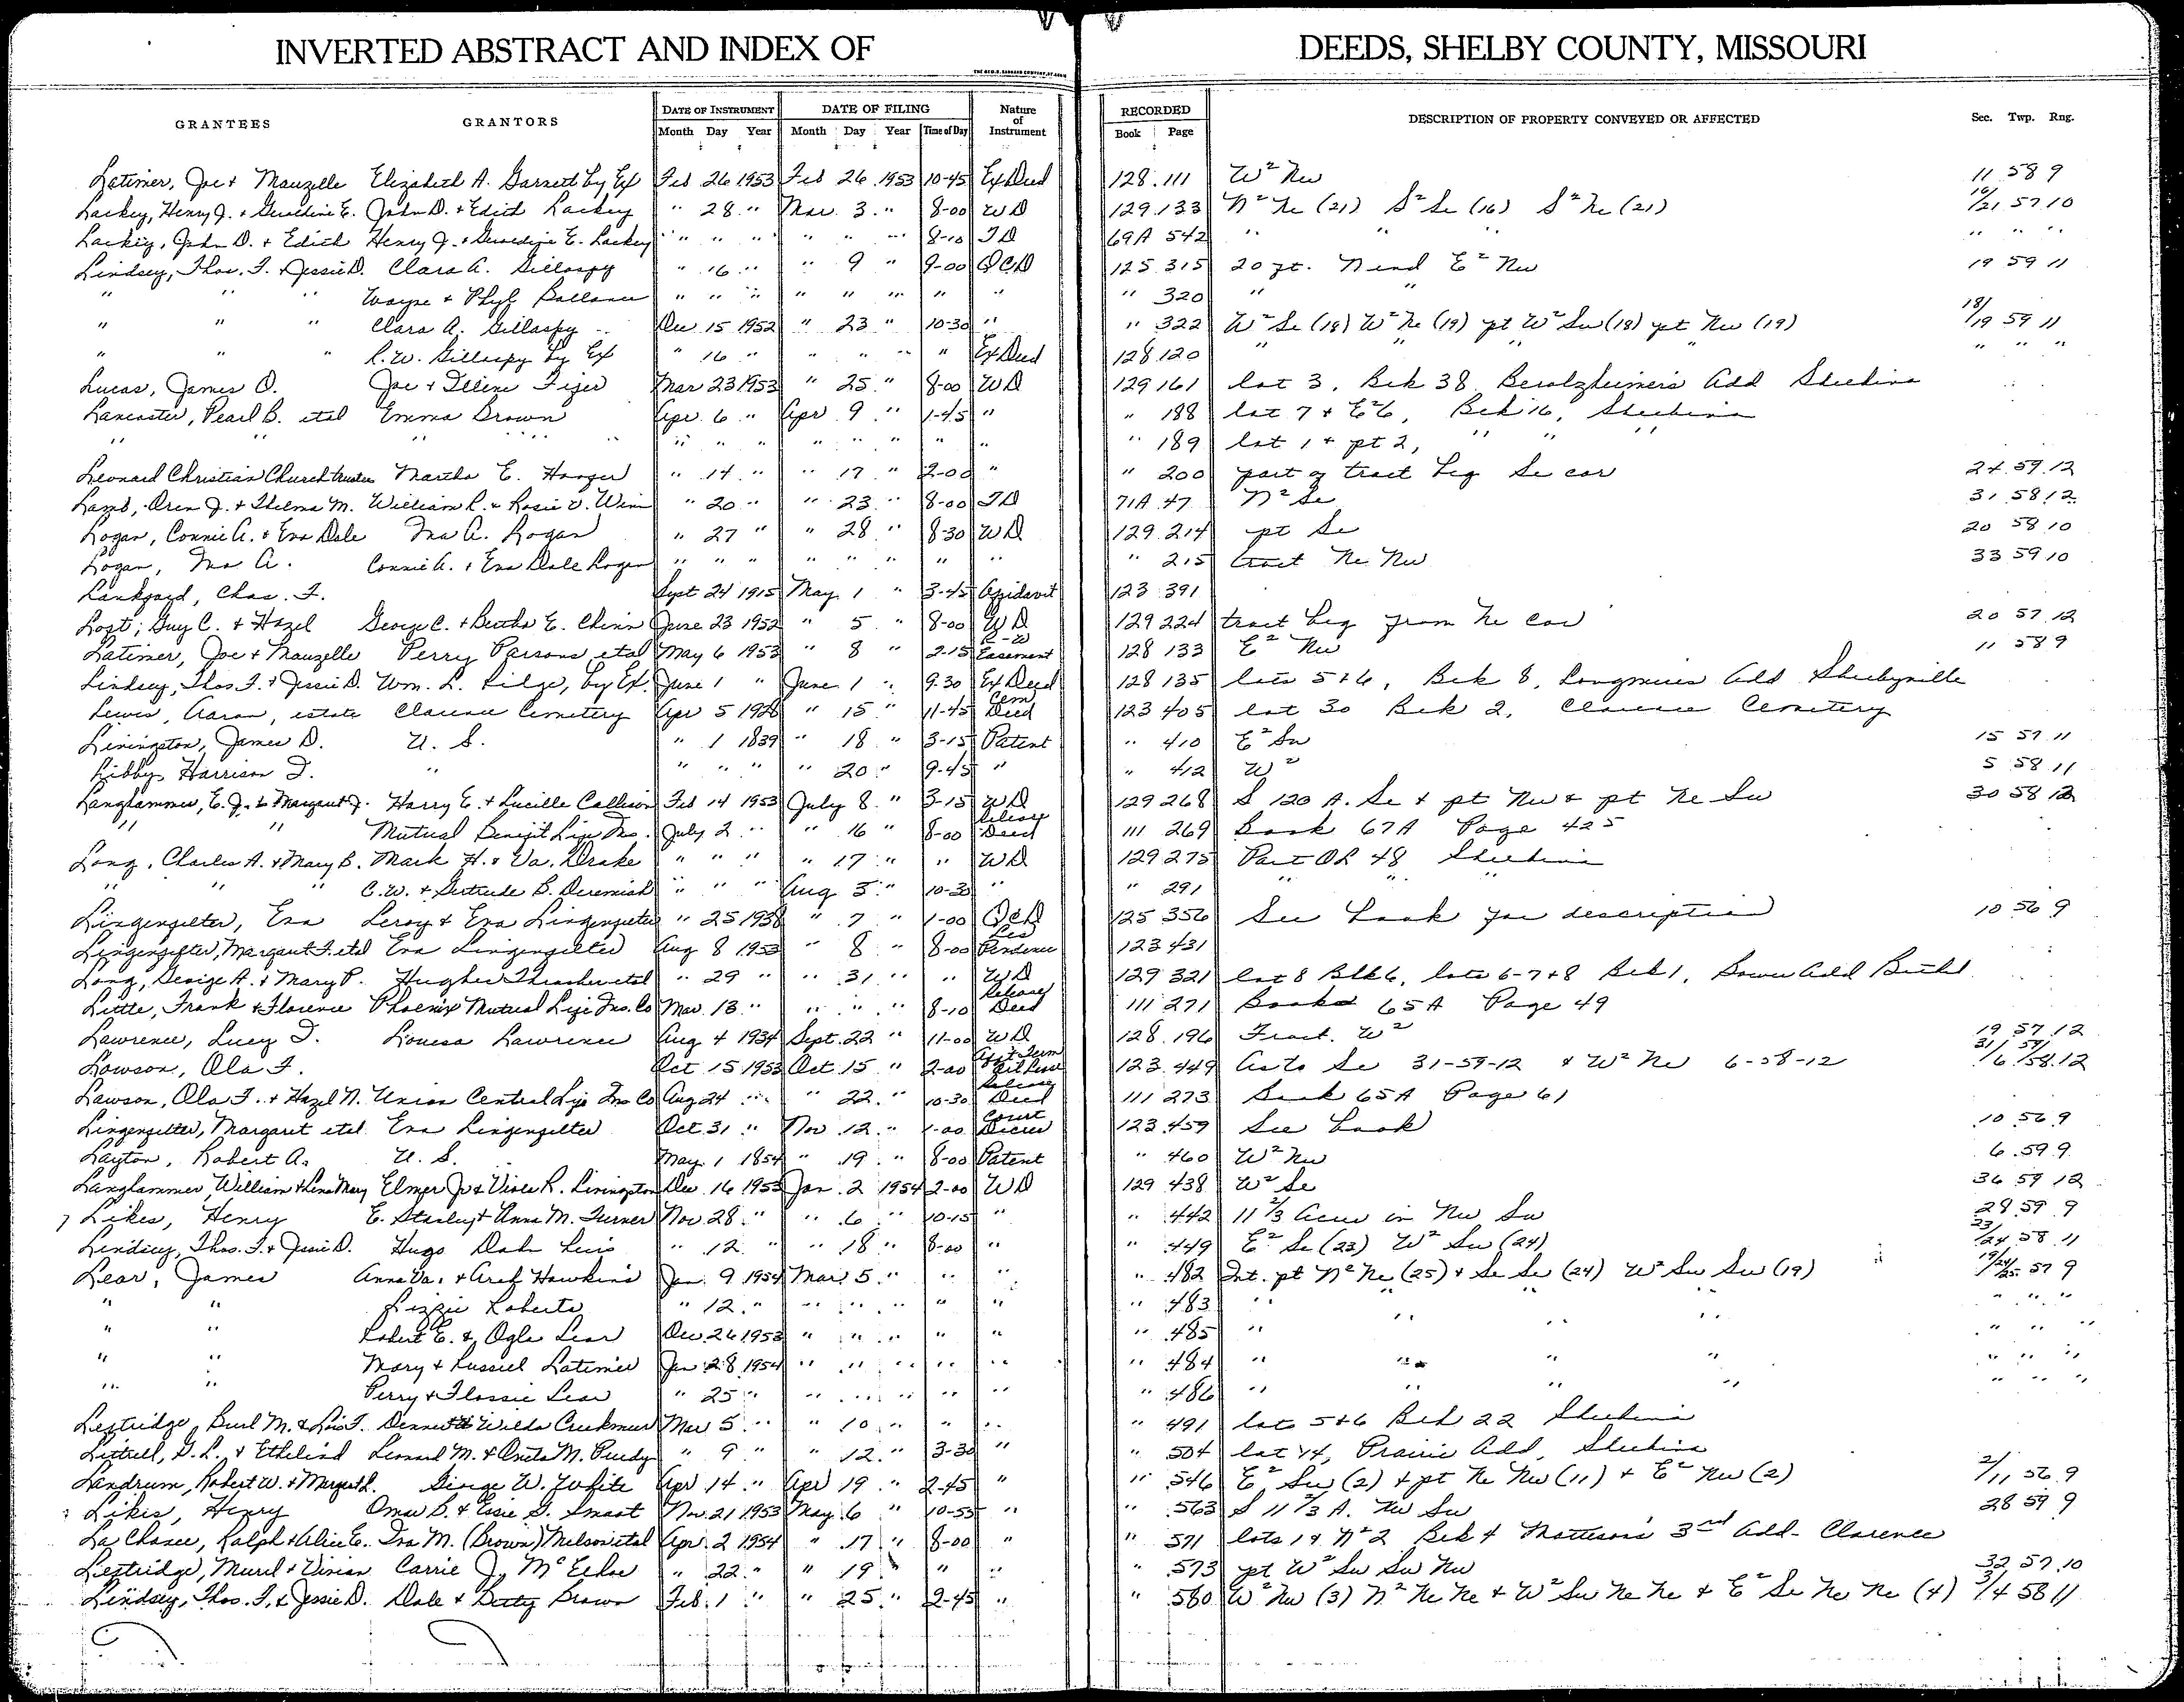 INVERTED ABSTRACT AND INDEX OF DEEDS, SHELBY COUNTY, MISSOURI
GRANTEES GRANTORS DATE OF INSTRUMENT DATE OF FILING Nature of Instrument RECORDED DESCRIPTION OF PROPERTY CONVEYED OR AFFECTED Sec. Twp. Rng.
Month Day Year Month Day Year Time of Day Book Page
Latimer, Joe + Mauzelle Elizabeth A. Garnett by Ex Feb 26 1953 Feb 26 1953 10-45 Ex Deed 128 111 W² Nw 11 58 9
Lackey, Henry J. + Geraldine E. John D. + Edith Lackey " 28 " Mar. 3 " 8-00 WD 129 133 N² Ne (21) S² Se (16) S² Ne (21) 16/21 57 10
Lackey, John D. + Edith Henry J. + Geraldine E. Lackey " " " " " " 8-10 TD 69A 542 " " " " " "
Lindsey, Thos. F. + Jessie D. Clara A. Gillaspy " 16 " " 9 " 9-00 QCD 125 315 20 ft. N end E² Nw 19 59 11
" " " Wayne + Phyl " " " " " " " " " 320 " "
" " " Clara A. Gillaspy Dec 15 1952 " 23 " 10-30 " " 322 W² Se (18) W² Ne (19) pt W² Sw (18) pt Nw (19) 18/19 59 11
" " " R. W. Gillaspy by Ex " 16 " " " " " Ex Deed 128 120 " " " " " " "
Lucas, James O. Joe + Mar 23 1953 " 25 " 8-00 WD 129 161 lot 3, Blk 38 Berolzheimer's Add Shelbina
Lancaster, Pearl B. etal Emma Brown Apr. 6 " Apr 9 " 1-45 " " 188 lot 7 + E² 6, Blk 16, Shelbina
" " " " " " " " " " " " " 189 lot 1 + pt 2, " " "
Leonard Christian Church trustees Martha E. " 14 " " 17 " 2-00 " " 200 part of tract beg Se cor 24 59 12
Lamb, Oren J. + Thelma M. William R. + Rosie V. " 20 " " 23 " 8-00 TD 71A 47 N² Se 31 58 12
Logan, Connie A. + Eva Dale Ina A. Logan " 27 " " 28 " 8-30 WD 129 214 pt Se 20 58 10
Logan, Ina A. Connie A. + Eva Dale Logan " " " " " " " " " 215 tract Ne Nw 33 59 10
Lankford, Chas. F. Sept 24 1915 May 1 " 3-45 Affidavit 123 391
Guy C. + Hazel George C. + Bertha E. Chinn June 23 1952 " 5 " 8-00 WD 129 224 tract beg from Ne cor 20 57 12
Latimer, Joe + Mauzelle Perry Parsons etal May 6 1953 " 8 " 2-15 R-W Easement 128 133 E² Nw 11 58 9
Lindsey, Thos. F. + Jessie D. Wm. L. by Ex. June 1 " June 1 " 9-30 Ex Deed 128 135 lots 5+6, Blk 8, Longmires Add Shelbyville
Lewis, Aaron, estate Clarence Cemetery Apr 5 1928 " 15 " 11-45 Cem Deed 123 405 lot 30 Blk 2, Clarence Cemetery
Livingston, James D. U. S. " 1 1839 " 18 " 3-15 Patent " 410 E² Sw 15 57 11
Libby, Harrison T. " " " " " 20 " 9-45 " " 412 W² 5 58 11
Langhammer, E. J. + Margaret J. Harry E. + Lucille Callison Feb 14 1953 July 8 " 3-15 WD 129 268 S 120 A. Se + pt Nw + pt Ne Sw 30 58 12
" " Mutual Benefit Life Ins. July 2 " " 16 " 8-00 Release Deed 111 269 Book 67A Page 425
Long, Charles A. + Mary B. Mark H. + Va. Drake " " " " 17 " " WD 129 275 Part OL 48 Shelbina
" " " C. W. + Gertrude B. Jeremiah " " " Aug 3 " 10-30 " " 291 " " "
Lingenfelter, Eva Leroy + Eva Lingenfelter " 25 1938 " 7 " 1-00 QCD 125 356 See book for description 10 56 9
Lingenfelter, Margaret F. etal Eva Lingenfelter Aug 8 1953 " 8 " 8-00 Lis Pendence 123 431
Long, George A. + Mary P. Hughes etal " 29 " " 31 " " WD 129 321 lot 8 Blk 6, lots 6-7+8 Blk 1, Add Bethel
Little, Frank + Florence Phoenix Mutual Life Ins. Co Mar. 13 " " " " 8-10 Release Deed 111 271 Book 65A Page 49
Lawrence, Lucy T. Louesa Lawrence Aug 4 1934 Sept. 22 " 11-00 WD 128 196 Fract. W² 19 57 12
Lawson, Ola F. Oct 15 1953 Oct. 15 " 2-00 123 449 As to Se 31-59-12 + W² Ne 6-58-12 31/6 59/58 12
Lawson, Ola F. + Hazel N. Union Central Life Ins Co Aug 24 " " 22 " 10-30 Release Deed 111 273 Book 65A Page 61
Lingenfelter, Margaret etal Eva Lingenfelter Oct 31 " Nov 12 " 1-00 Court Decree 123 459 See book 10 56 9
Layton, Robert A. U. S. May 1 1854 " 19 " 8-00 Patent " 460 W² Nw 6 59 9
Langhammer, William + Lena Mary Elmer Jr. + Viola R. Livingston Dec. 16 1953 Jan. 2 1954 2-00 WD 129 438 W² Se 36 59 12
Likes, Henry E. Stanley + Anna M. Turner Nov. 28 " " 6 " 10-15 " " 442 11 2/3 Acres in Nw Sw 28 59 9
Lindsey, Thos. F. + Jessie D. Hugo Dale " 12 " " 18 " 8-00 " " 449 E² Se (23) W² Sw (24) 23/24 58 11
Lear, James Anna Va. + Arch Hawkins Jan. 9 1954 Mar. 5 " " " " 482 Int. pt N² Ne (25) + Se Se (24) W² Sw Sw (19) 19/24/25 57 9
" " Lizzie Roberts " 12 " " " " " " " 483 " " " " " " "
" " Robert E. + Ogle Lear Dec. 26 1953 " " " " " " 485 " " " " " " "
" " Mary + Russell Latimer Jan 28 1954 " " " " " " 484 " " " " " " "
" " Perry + Flossie Lear " 25 " " " " " " " 486 " " " " " " "
Lestridge, Burl M. + Lois F. Bennett + Wilda Creekmur Mar 5 " " 10 " " " " 491 lots 5+6 Blk 22 Shelbina
Littrell, G. L. + Ethelind Leonard M. + Oneta M. Purdy " 9 " " 12 " 3-30 " " 504 lot 14, Prairie Add, Shelbina
Landrum, Robert W. + Margaret L. George W. White Apr 14 " Apr 19 " 2-45 " " 546 E² Sw (2) + pt Ne Nw (11) + E² Nw (2) 2/11 56 9
Likes, Henry Omar B. + Essie G. Smoot Nov. 21 1953 May 6 " 10-55 " " 563 S 11 2/3 A. Nw Sw 28 59 9
La Chance, Ralph + Alice E. Iva M. (Brown) Melson etal Apr. 2 1954 " 17 " 8-00 " " 571 lots 1 + N² 2 Blk 4 Mattison's 3rd Add- Clarence
Lestridge, Murel + Vivian Carrie J. McElroe " 22 " " 19 " " " " 573 pt W² Sw Sw Nw 32 57 10
Lindsey, Thos. F. + Jessie D. Dale + Betty Brown Feb. 1 " " 25 " 2-45 " " 580 W² Nw (3) N² Ne Ne + W² Sw Ne Ne + E² Se Ne Ne (4) 3/4 58 11